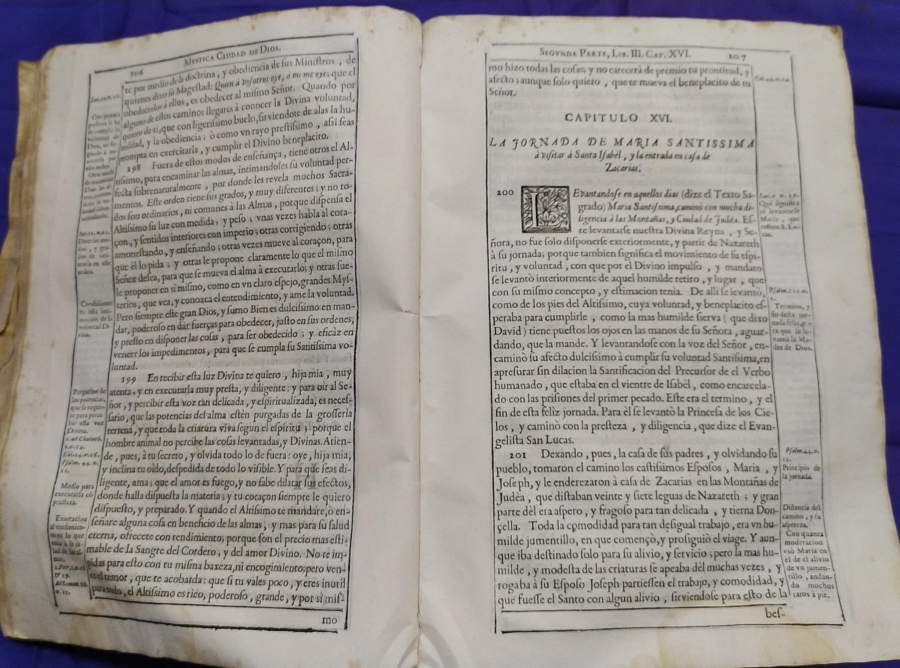 206
MYSTICA CIUDAD DE DIOS.
te por medio de la doctrina, y obediencia de sus Ministros, de
quienes dixo su Magestad: Quien à vosotros oye, à mi me oye; que el
obedecerlos à ellos, es obedecer al mismo Señor. Quando por
alguno de estos caminos llegares à conocer la Divina voluntad,
quiero de ti, que con ligerissimo buelo, sirviendote de alas la hu-
mildad, y la obediencia; ò como vn rayo prestissimo, assi seas
prompta en exercitarla, y cumplir el Divino beneplacito.
198 Fuera de estos modos de enseñança, tiene otros el Al-
tissimo, para encaminar las almas, intimandoles su voluntad per-
fecta sobrenaturalmente, por donde les revela muchos Sacra-
mentos. Este orden tiene sus grados, y muy diferentes; y no to-
dos son ordinarios, ni comunes à las Almas, porque dispensa el
Altissimo su luz con medida; y peso; vnas vezes habla al cora-
çon, y sentidos interiores con imperio; otras corrigiendo; otras
amonestando, y enseñando; otras vezes mueve al coraçon, para
que èl lo pida; y otras le propone claramente lo que el mismo
Señor desea, para que se mueva el alma à executarlo; y otras sue-
le proponer en sì mismo, como en vn claro espejo, grandes Mys-
terios, que vea, y conozca el entendimiento, y ame la voluntad.
Pero siempre este gran Dios, y sumo Bien es dulcissimo en man-
dar, poderoso en dàr fuerças para obedecer, justo en sus ordenes,
y presto en disponer las cosas, para ser obedecido; y eficaz en
vencer los impedimentos, para que se cumpla su Santissima vo-
luntad.
199 En recibir esta luz Divina te quiero, hija mia, muy
atenta, y en executarla muy presta, y diligente: y para oìr al Se-
ñor, y percibir esta voz tan delicada, y espiritualizada, es neces-
sario, que las potencias del alma estèn purgadas de la grosseria
terrena, y que toda la criatura viva segun el espiritu; porque el
hombre animal no percibe las cosas levantadas, y Divinas. Atien-
de, pues, à tu secreto, y olvida todo lo de fuera: oye, hija mia,
y inclina tu oìdo, despedida de todo lo visible. Y para què seas di-
ligente, ama; que el amor es fuego, y no sabe dilatar sus efectos,
donde halla dispuesta la materia; y tu coraçon siempre le quiero
dispuesto, y preparado. Y quando el Altissimo te mandare, ò en-
señare alguna cosa en beneficio de las almas, y mas para su salud
eterna, ofrecete con rendimiento; porque son el precio mas esti-
mable de la Sangre del Cordero, y del amor Divino. No te im-
pidas para esto con tu misma baxeza, ni encogimiento; pero ven-
ce el temor, que te acobarda: que si tu vales poco, y eres inutil
para todo, el Altissimo es rico, poderoso, grande, y por sì mis-
mo
Purgacion de
las potencias,
Medio para
executarla cõ
presteza.
SEGUNDA PARTE, LIB. III. CAP. XVI.
207
mo hizo todas las cosas; y no carecerà de premio tu prontitud, y
afecto; aunque solo quiero, que te mueva el beneplacito de tu
Señor.
CAPITULO XVI.
LA JORNADA DE MARIA SANTISSIMA
à visitar à Santa Isabèl, y la entrada en casa de
Zacarias.
200 LEvantandose en aquellos dias (dize el Texto Sa-
grado) Maria Santissima, caminò con mucha di-
ligencia à las Montañas, y Ciudad de Judèa. Es-
te levantarse nuestra Divina Reyna, y Se-
ñora, no fue solo disponerse exteriormente, y partir de Nazareth
à su jornada; porque tambien significa el movimiento de su espi-
ritu, y voluntad, con que por el Divino impulso, y mandato
se levantò interiormente de aquel humilde retiro, y lugar, que
con su mismo concepto, y estimacion tenia. De allì se levantò,
como de los pies del Altissimo, cuya voluntad, y beneplacito es-
peraba para cumplirle, como la mas humilde sierva (que dixo
David) tiene puestos los ojos en las manos de su Señora, aguar-
dando, que la mande. Y levantandose con la voz del Señor, en-
caminò su afecto dulcissimo à cumplir su voluntad Santissima, en
apresurar sin dilacion la Santificacion del Precursor de el Verbo
humanado, que estaba en el vientre de Isabèl, como encarcela-
do con las prisiones del primer pecado. Este era el termino, y el
fin de esta feliz jornada. Para èl se levantò la Princesa de los Cie-
los, y caminò con la presteza, y diligencia, que dize el Evan-
gelista San Lucas.
201 Dexando, pues, la casa de sus padres, y olvidando su
pueblo, tomaron el camino los castissimos Esposos, Maria, y
Joseph, y le enderezaron à casa de Zacarias en las Montañas de
Judèa, que distaban veinte y siete leguas de Nazareth; y gran
parte dèl era aspero, y fragoso para tan delicada, y tierna Don-
çella. Toda la comodidad para tan desigual trabajo, era vn hu-
milde jumentillo, en que començò, y prosiguiò el viage. Y aun-
que iba destinado solo para su alivio, y servicio; pero la mas hu-
milde, y modesta de las criaturas se apeaba dèl muchas vezes, y
rogaba à su Esposo Joseph partiessen el trabajo, y comodidad, y
que fuesse el Santo con algun alivio, sirviendose para esto de la
bes-
Què significa
el levantarse
Maria, que
Termino, y
Madre de Dios.
Psalm. 44. v.
11.
Principio de
la jornada.
Distancia del
camino, y su
aspereza.
Con quanta
moderacion
vsò Maria en
èl de el alivio
de vn jumen-
tillo, andan-
do muchos
ratos à pie.